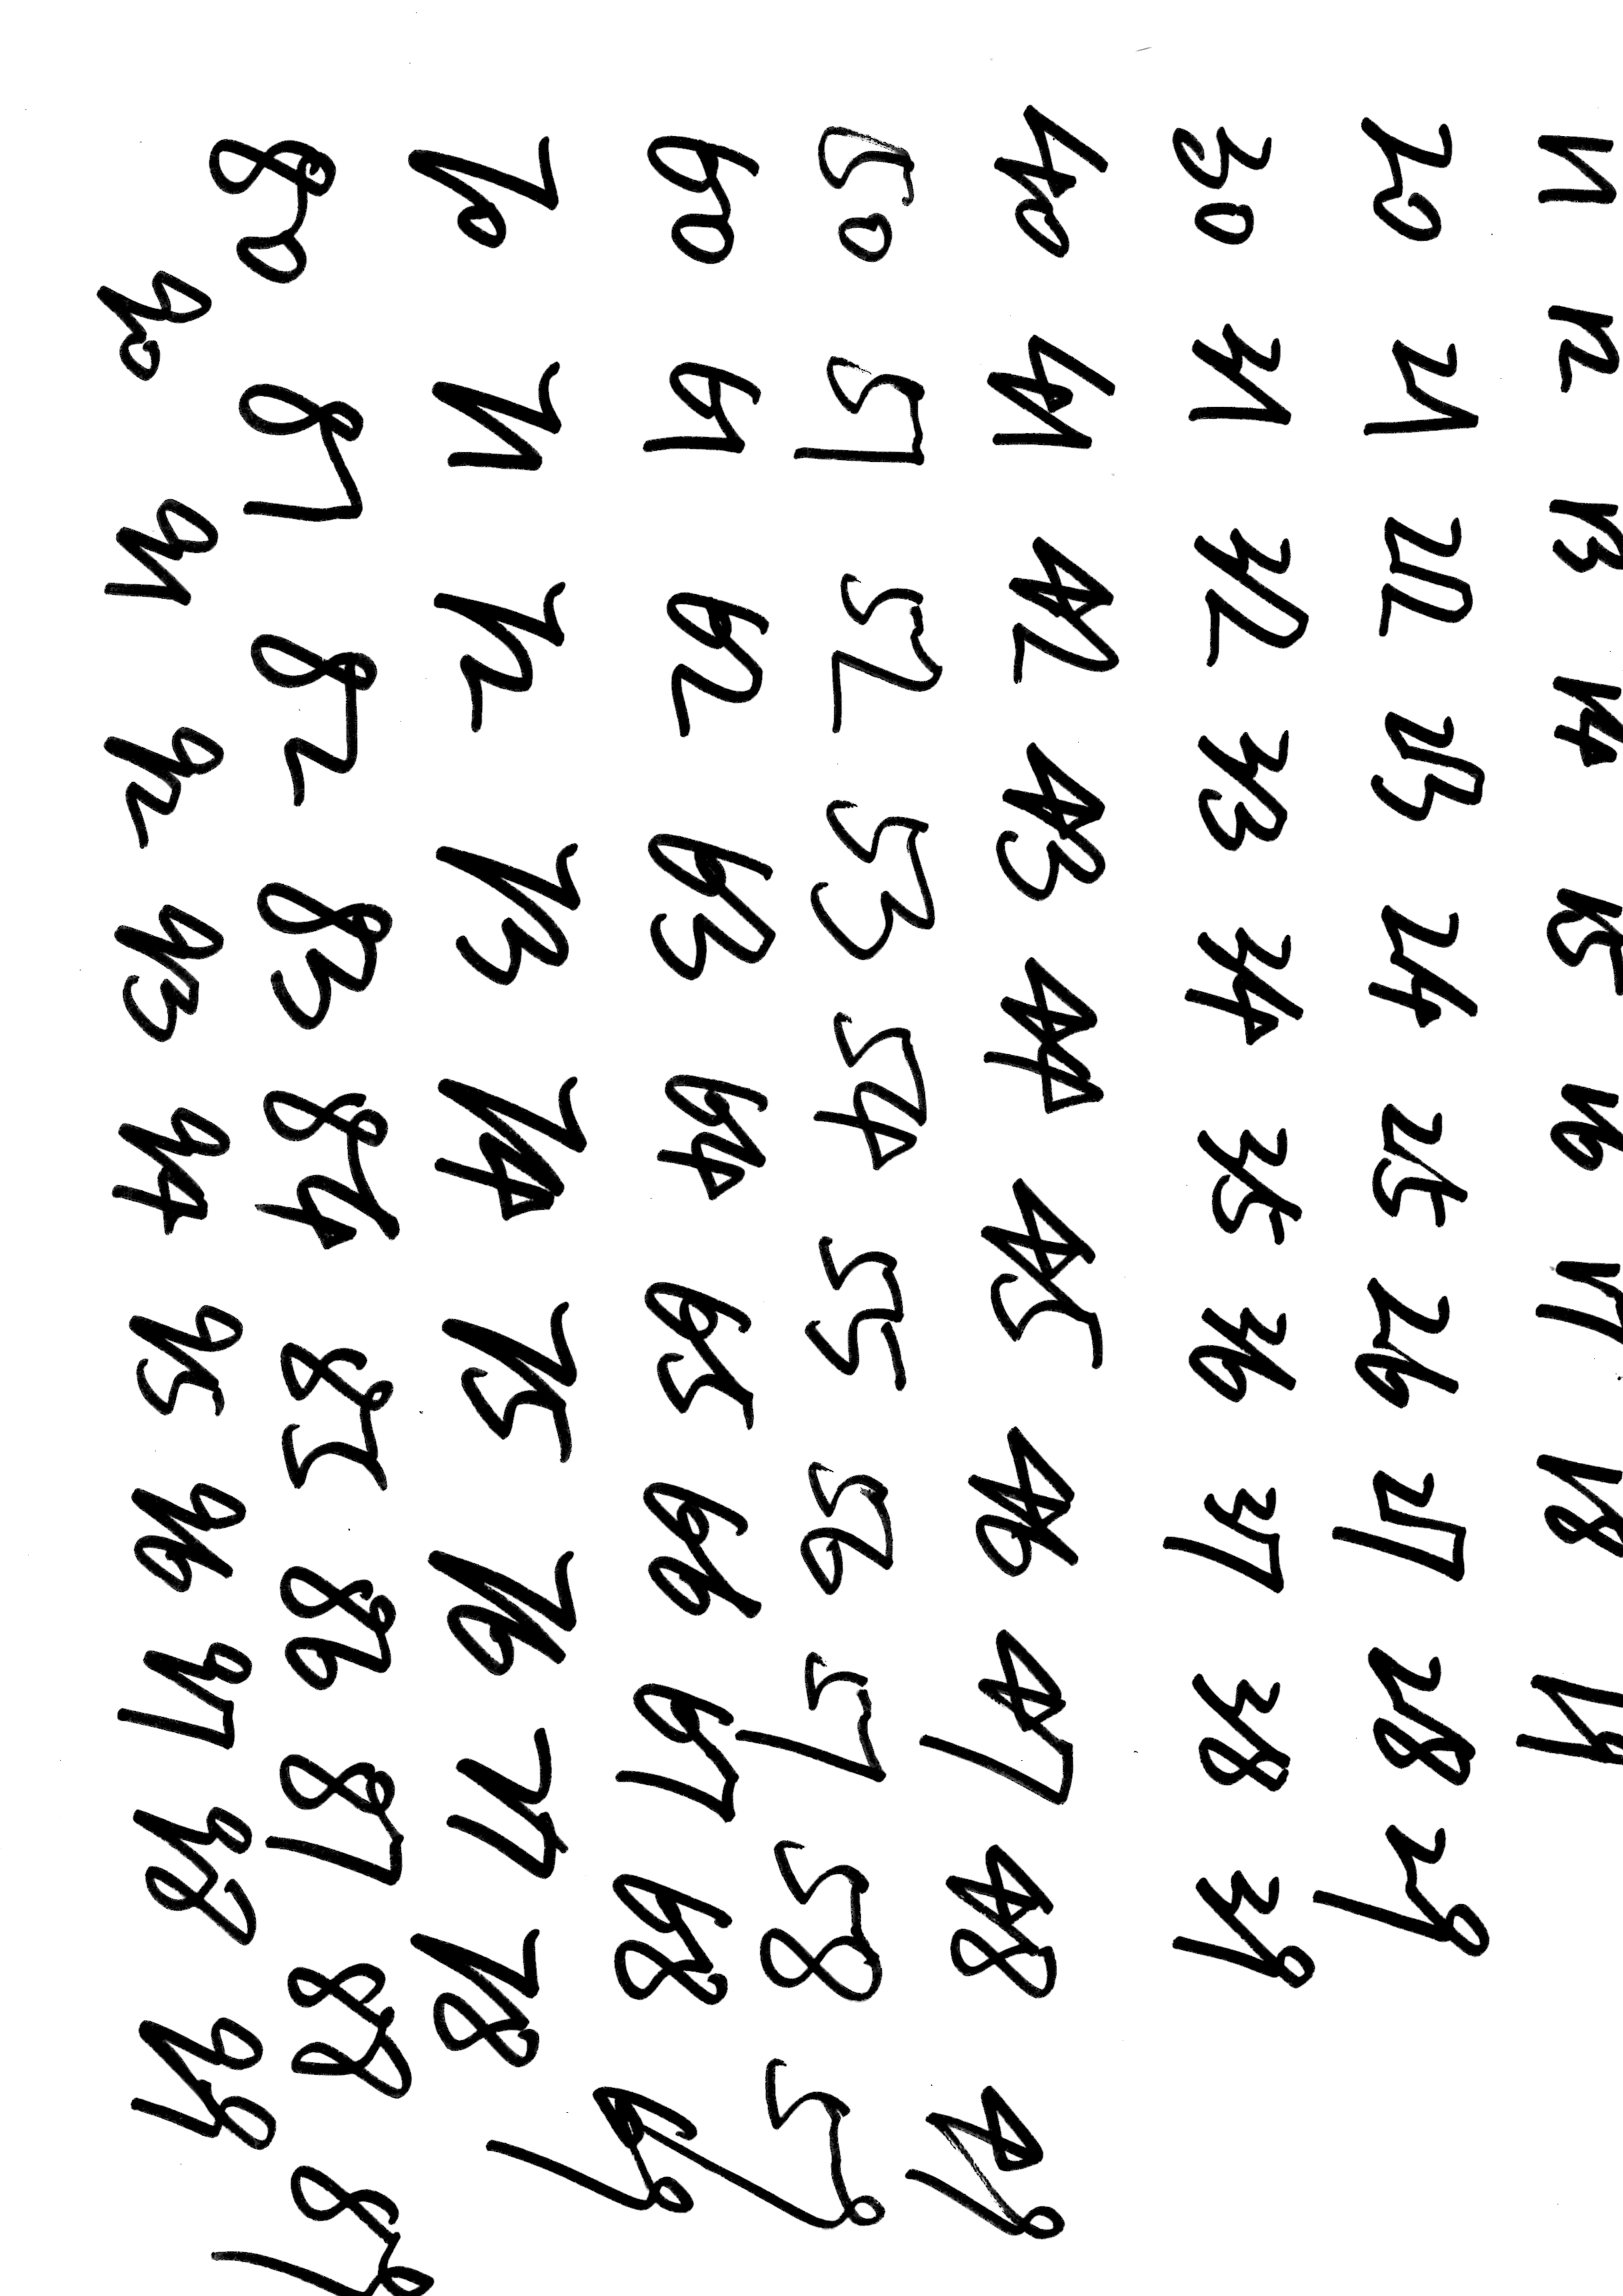 11 12 13 14 15 16 17 18 19
20 21 22 23 24 25 26 27 28 29
30 31 32 33 34 35 36 37 38 39
40 41 42 43 44 45 46 47 48 49
50 51 52 53 54 55 56 57 58 59
60 61 62 63 64 65 66 67 68 69
70 71 72 73 74 75 76 77 78
80 81 82 83 84 85 86 87 88 89
90 91 92 93 94 95 96 97 98 99